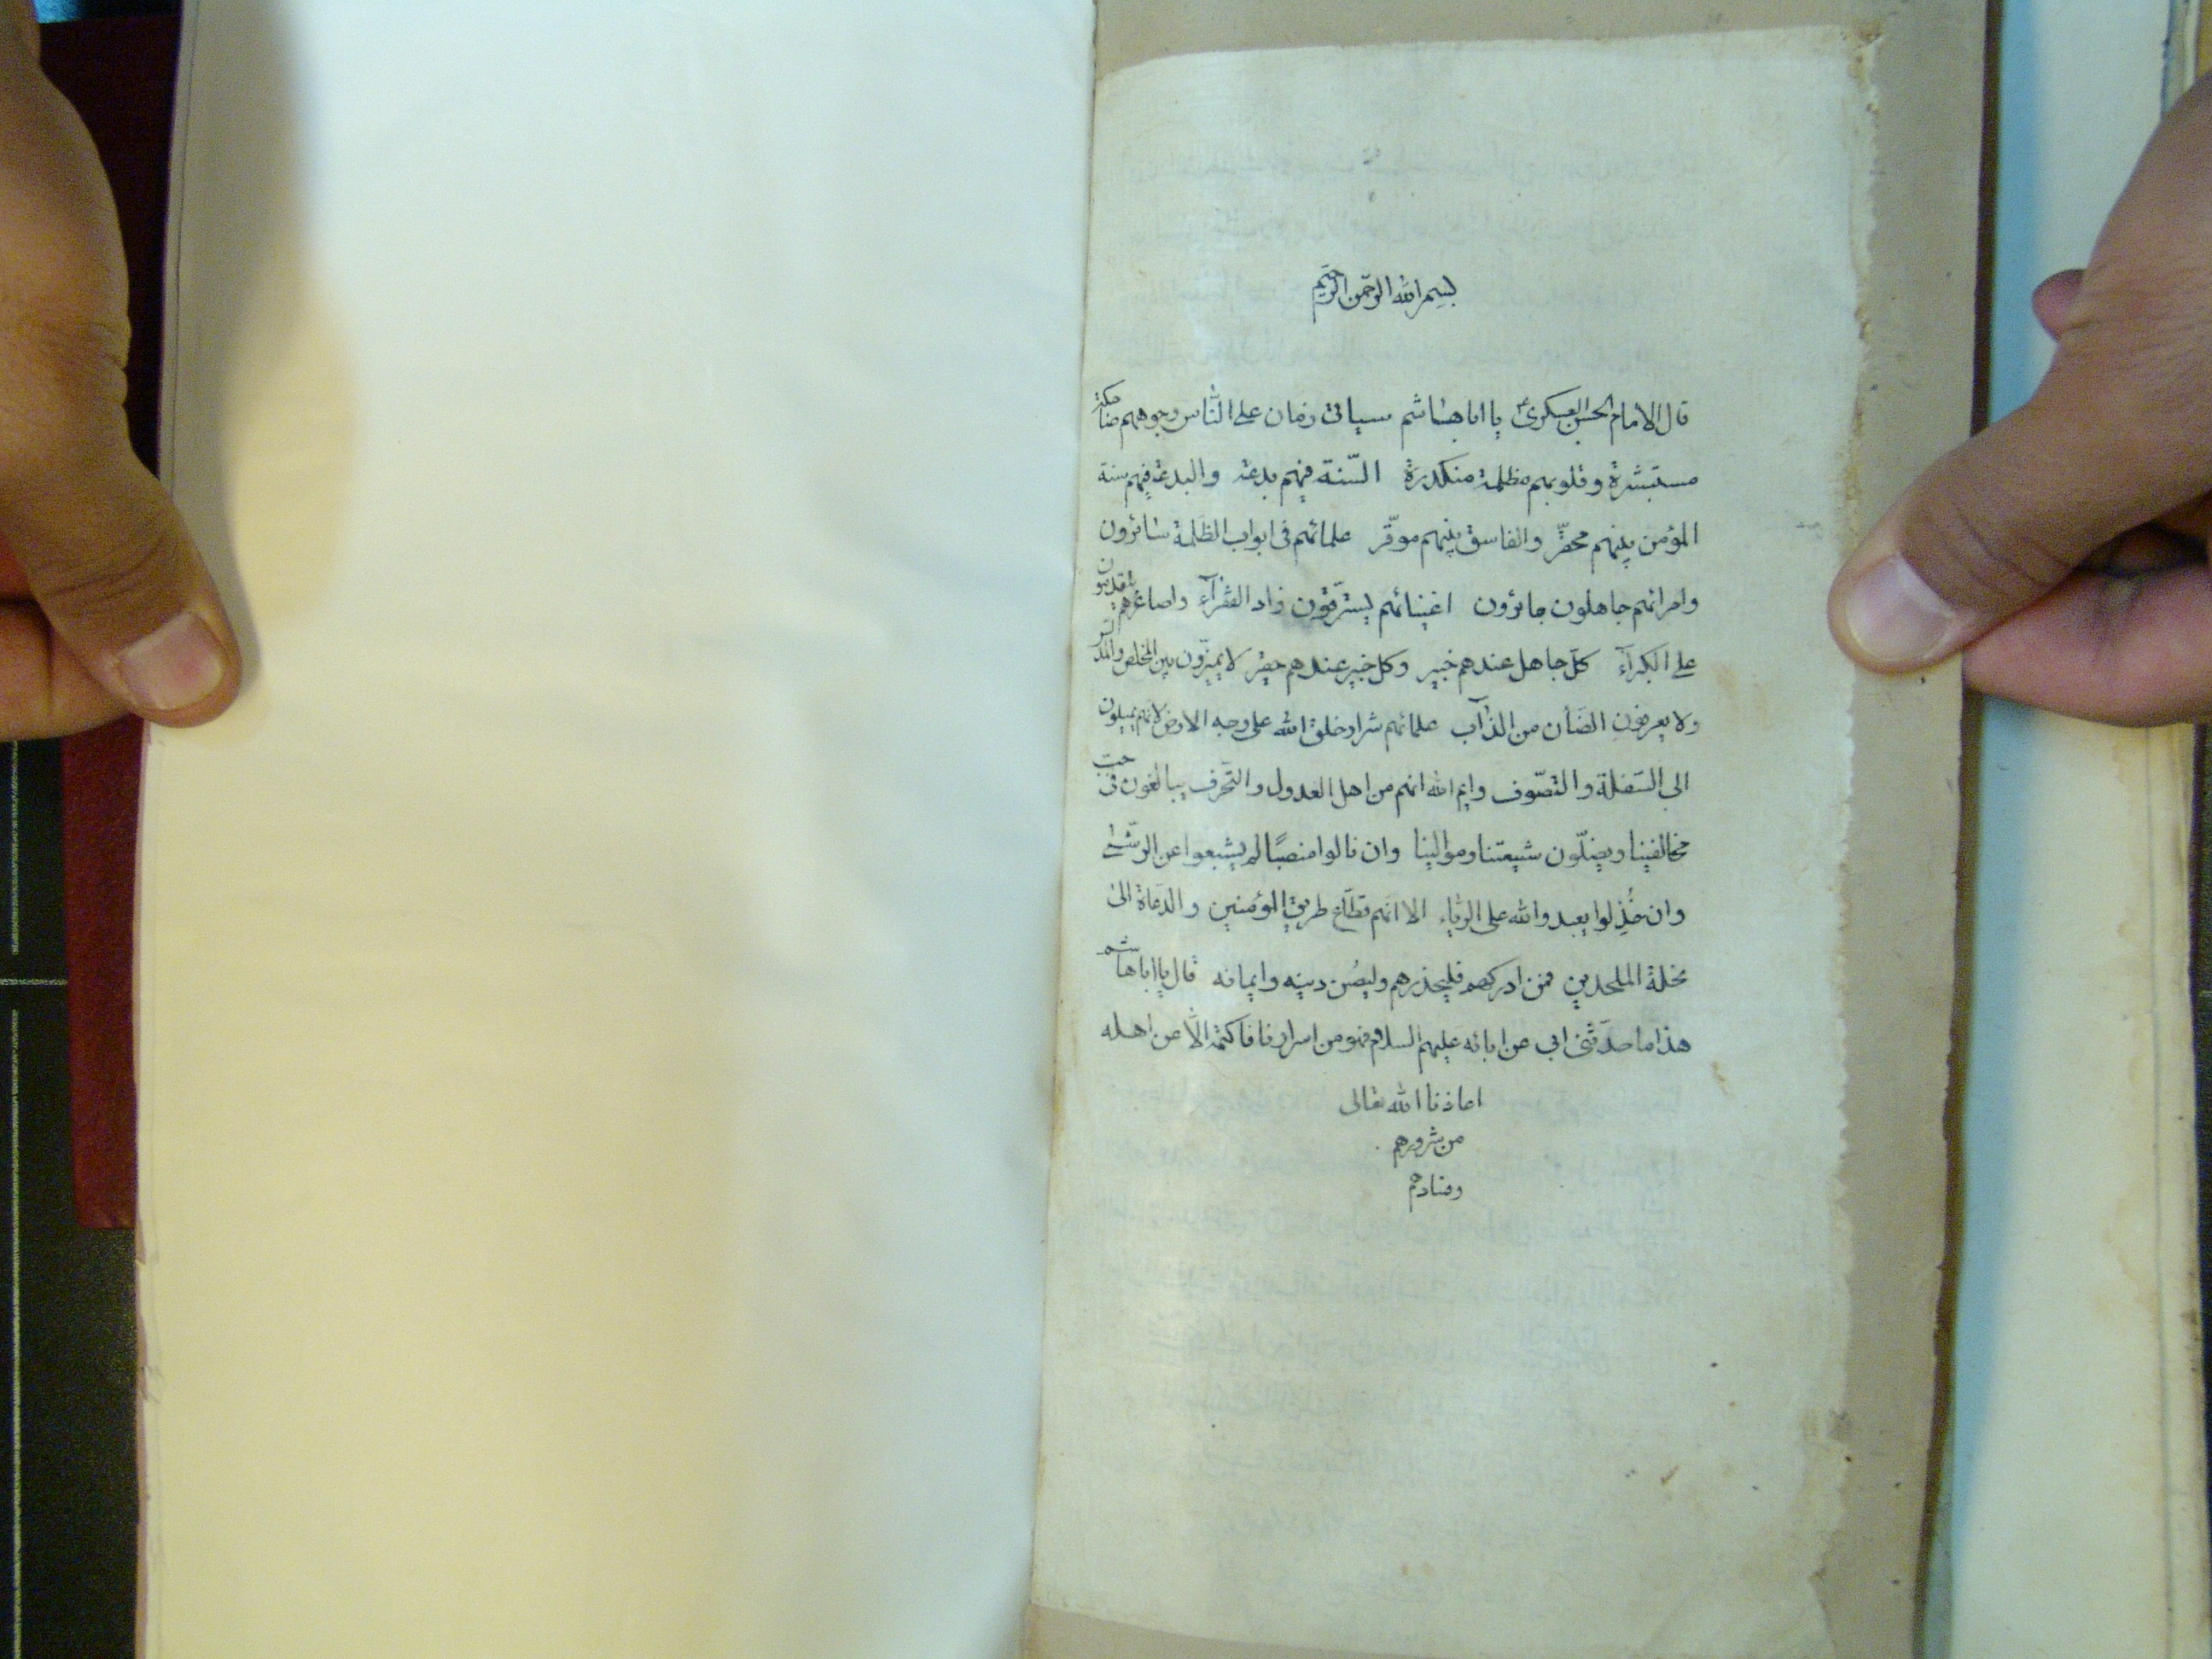 بسم الله الرّحمن الرّحيم
قال الامام الحسن العسكرى ع يا ابا هاشم سياتى زمان على النّاس وجوههم ضاحكة
مستبشرة وقلوبهم مظلمة منكدرة السّنة فيهم بدعة والبدعة فيهم سنة
المؤمن بينهم محقّر والفاسق بينهم موقّر علمائهم فى ابواب الظلمة سائرون
وامرائهم جاهلون جائرون اغنيائهم يسترقون زاد الفقرآء واصاغرهم يتقدمون
على الكبرآء كلّ جاهل عندهم خبير وكل خبير عندهم حقير لا يميّزون بين المخلص والمد
ولا يعرفون الضّأن من الذآب علمائهم شرار خلق الله على وجه الارض لانهم يميلون
الى السّفلة والتّصوّف وايم الله انهم من اهل العدول والتّحرف يبالغون فى حبّ
مخالفينا ويضلّون شيعتنا وموالينا وان نالوا منصبًا لم يشبعوا عن الرّشآ
وان خُذِلوا يعبدوا الله على الرّياء الا انهم قطّاع طريق المؤمنين والدّعاة الى
نحلة الملحدين فمن ادركهم فليحذرهم وليصُن دينه وايمانه قال يا ابا هاشم
هذا ما حدّثنى ابى عن ابائه عليهم السلام فهو من اسرارنا فاكتمه الّا عن اهله
اعاذنا الله تعالى
من شرورهم